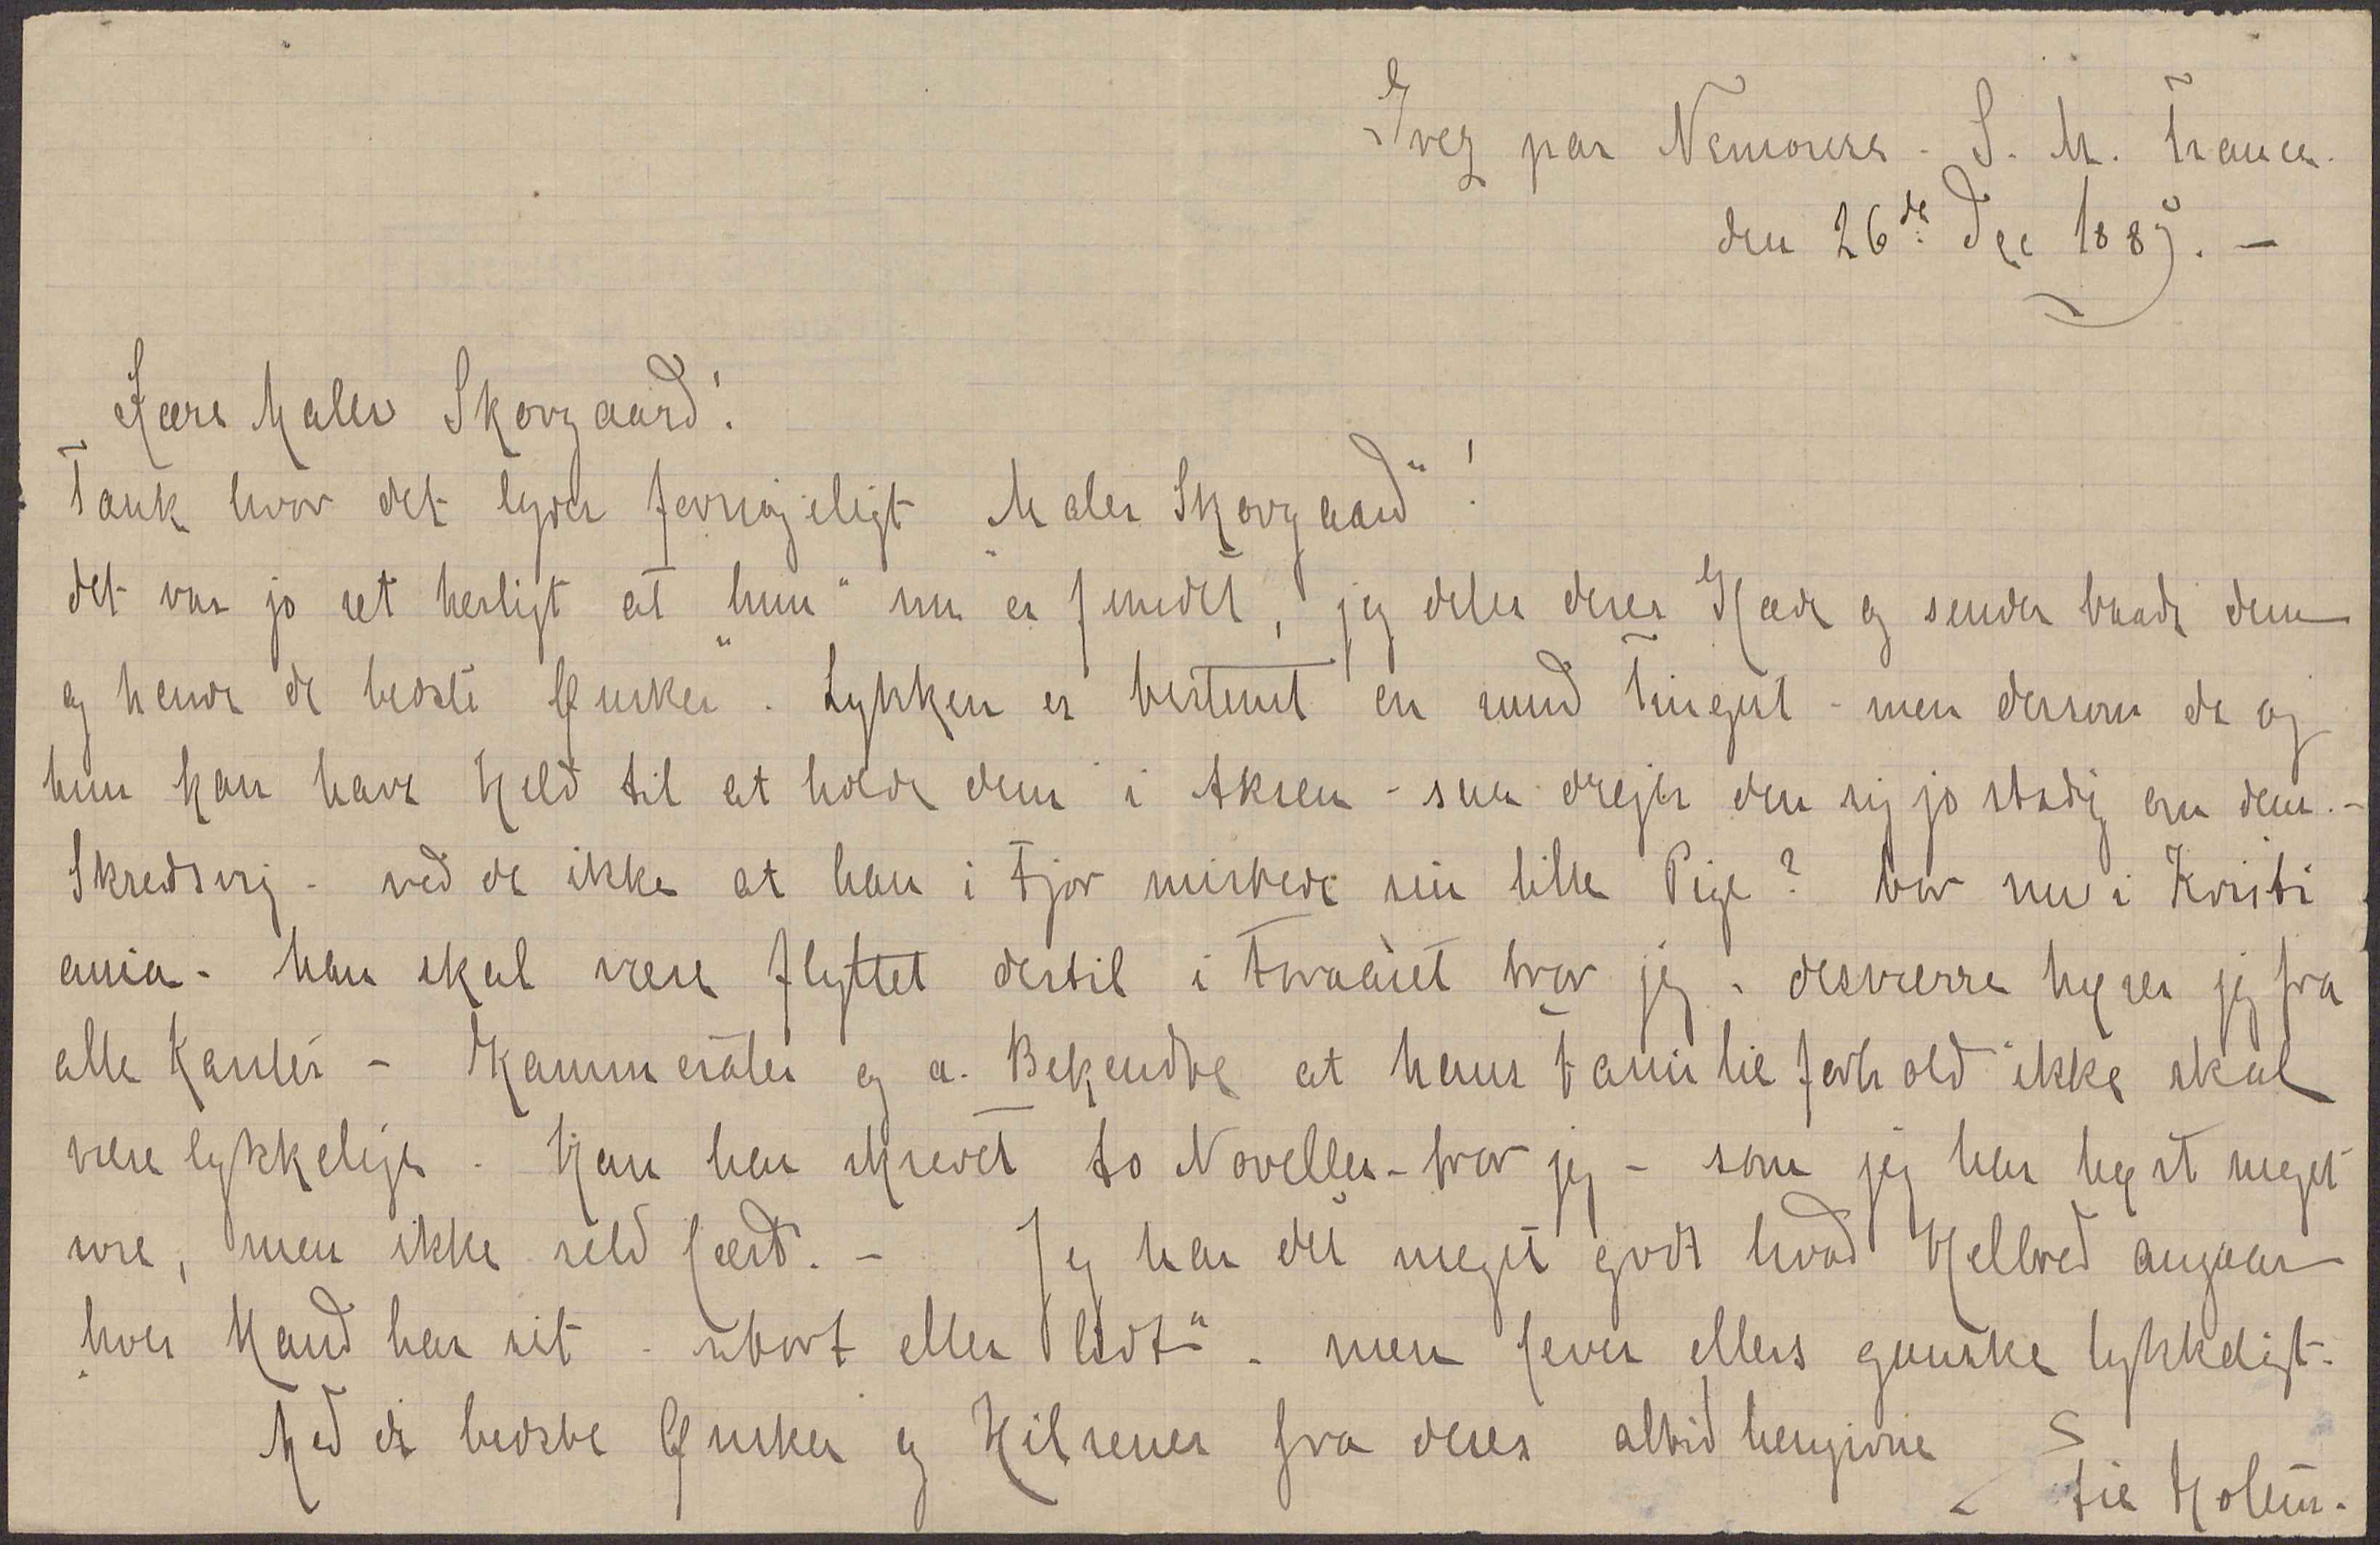 Grez par Nemours - S. M. France.
den 26de Dec 1885. -
Kære Maler Skovgaard!
Tænk hvor det lyder fornøjeligt "Maler Skovgaard"!
det var jo ret herligt at "hun" nu er fundet, jeg deler deres Glæde og sender baade dem
og hende de bedste Ønsker. Lykken er bestemt en rund Tingest - men dersom de og
hun kan have Held til at holde dem i Aksen - saa drejer den sig jo stadig om dem. -
Skredsvig - ved de ikke at han i Fjor mistede sin lille Pige? bor nu i Kristi
ania - han skal være flyttet dertil i Foraaret tror jeg - desværre hører jeg fra
alle Kanter - Kammerater og a. Bekendte at hans Familieforhold ikke skal
være lykkelige. Han har skrevet to Noveller - tror jeg - som jeg har hørt meget
rose, men ikke selv læst. - Jeg har det meget godt hvad Helbred angaar
"hver Mand har sit - stort eller lidt" - men lever ellers ganske lykkeligt.
Med de bedste Ønsker og Hilsener fra deres altid hengivne